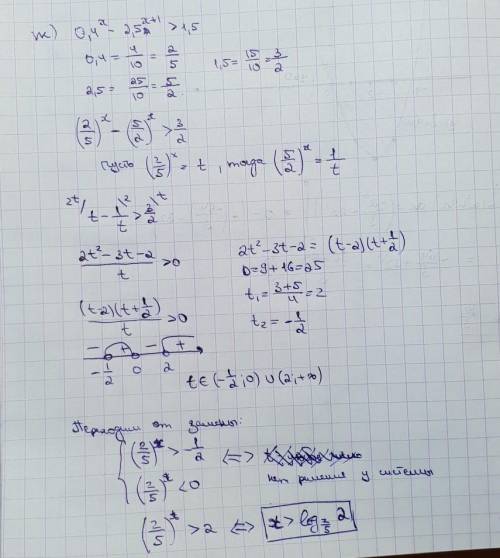 ж) 0,4^x - 2,5^{x+1} > 1,5
0,4 = 4/10 = 2/5    1,5 = 15/10 = 3/2
2,5 = 25/10 = 5/2
(2/5)^x - (5/2)^x > 3/2
Пусть (2/5)^x = t, тогда (5/2)^x = 1/t
2t/ t - 1/t \2 > 3/2 \t
(2t² - 3t - 2)/t > 0    2t² - 3t - 2 = (t-2)(t+1/2)
D = 9 + 16 = 25
t₁ = (3+5)/4 = 2
((t-2)(t+1/2))/t > 0    t₂ = -1/2
- + - +
-1/2 0 2
t ∈ (-1/2; 0) ∪ (2; +∞)
Переходим от замены:
{ (2/5)^x > -1/2 <=>
(2/5)^x < 0    нет решения у системы
(2/5)^x > 2 <=> x > log_{2/5} 2